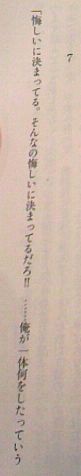 7
「悔しいに決まってる。そんなの悔しいに決まってるだろ!! ……俺が一体何をしたっていう